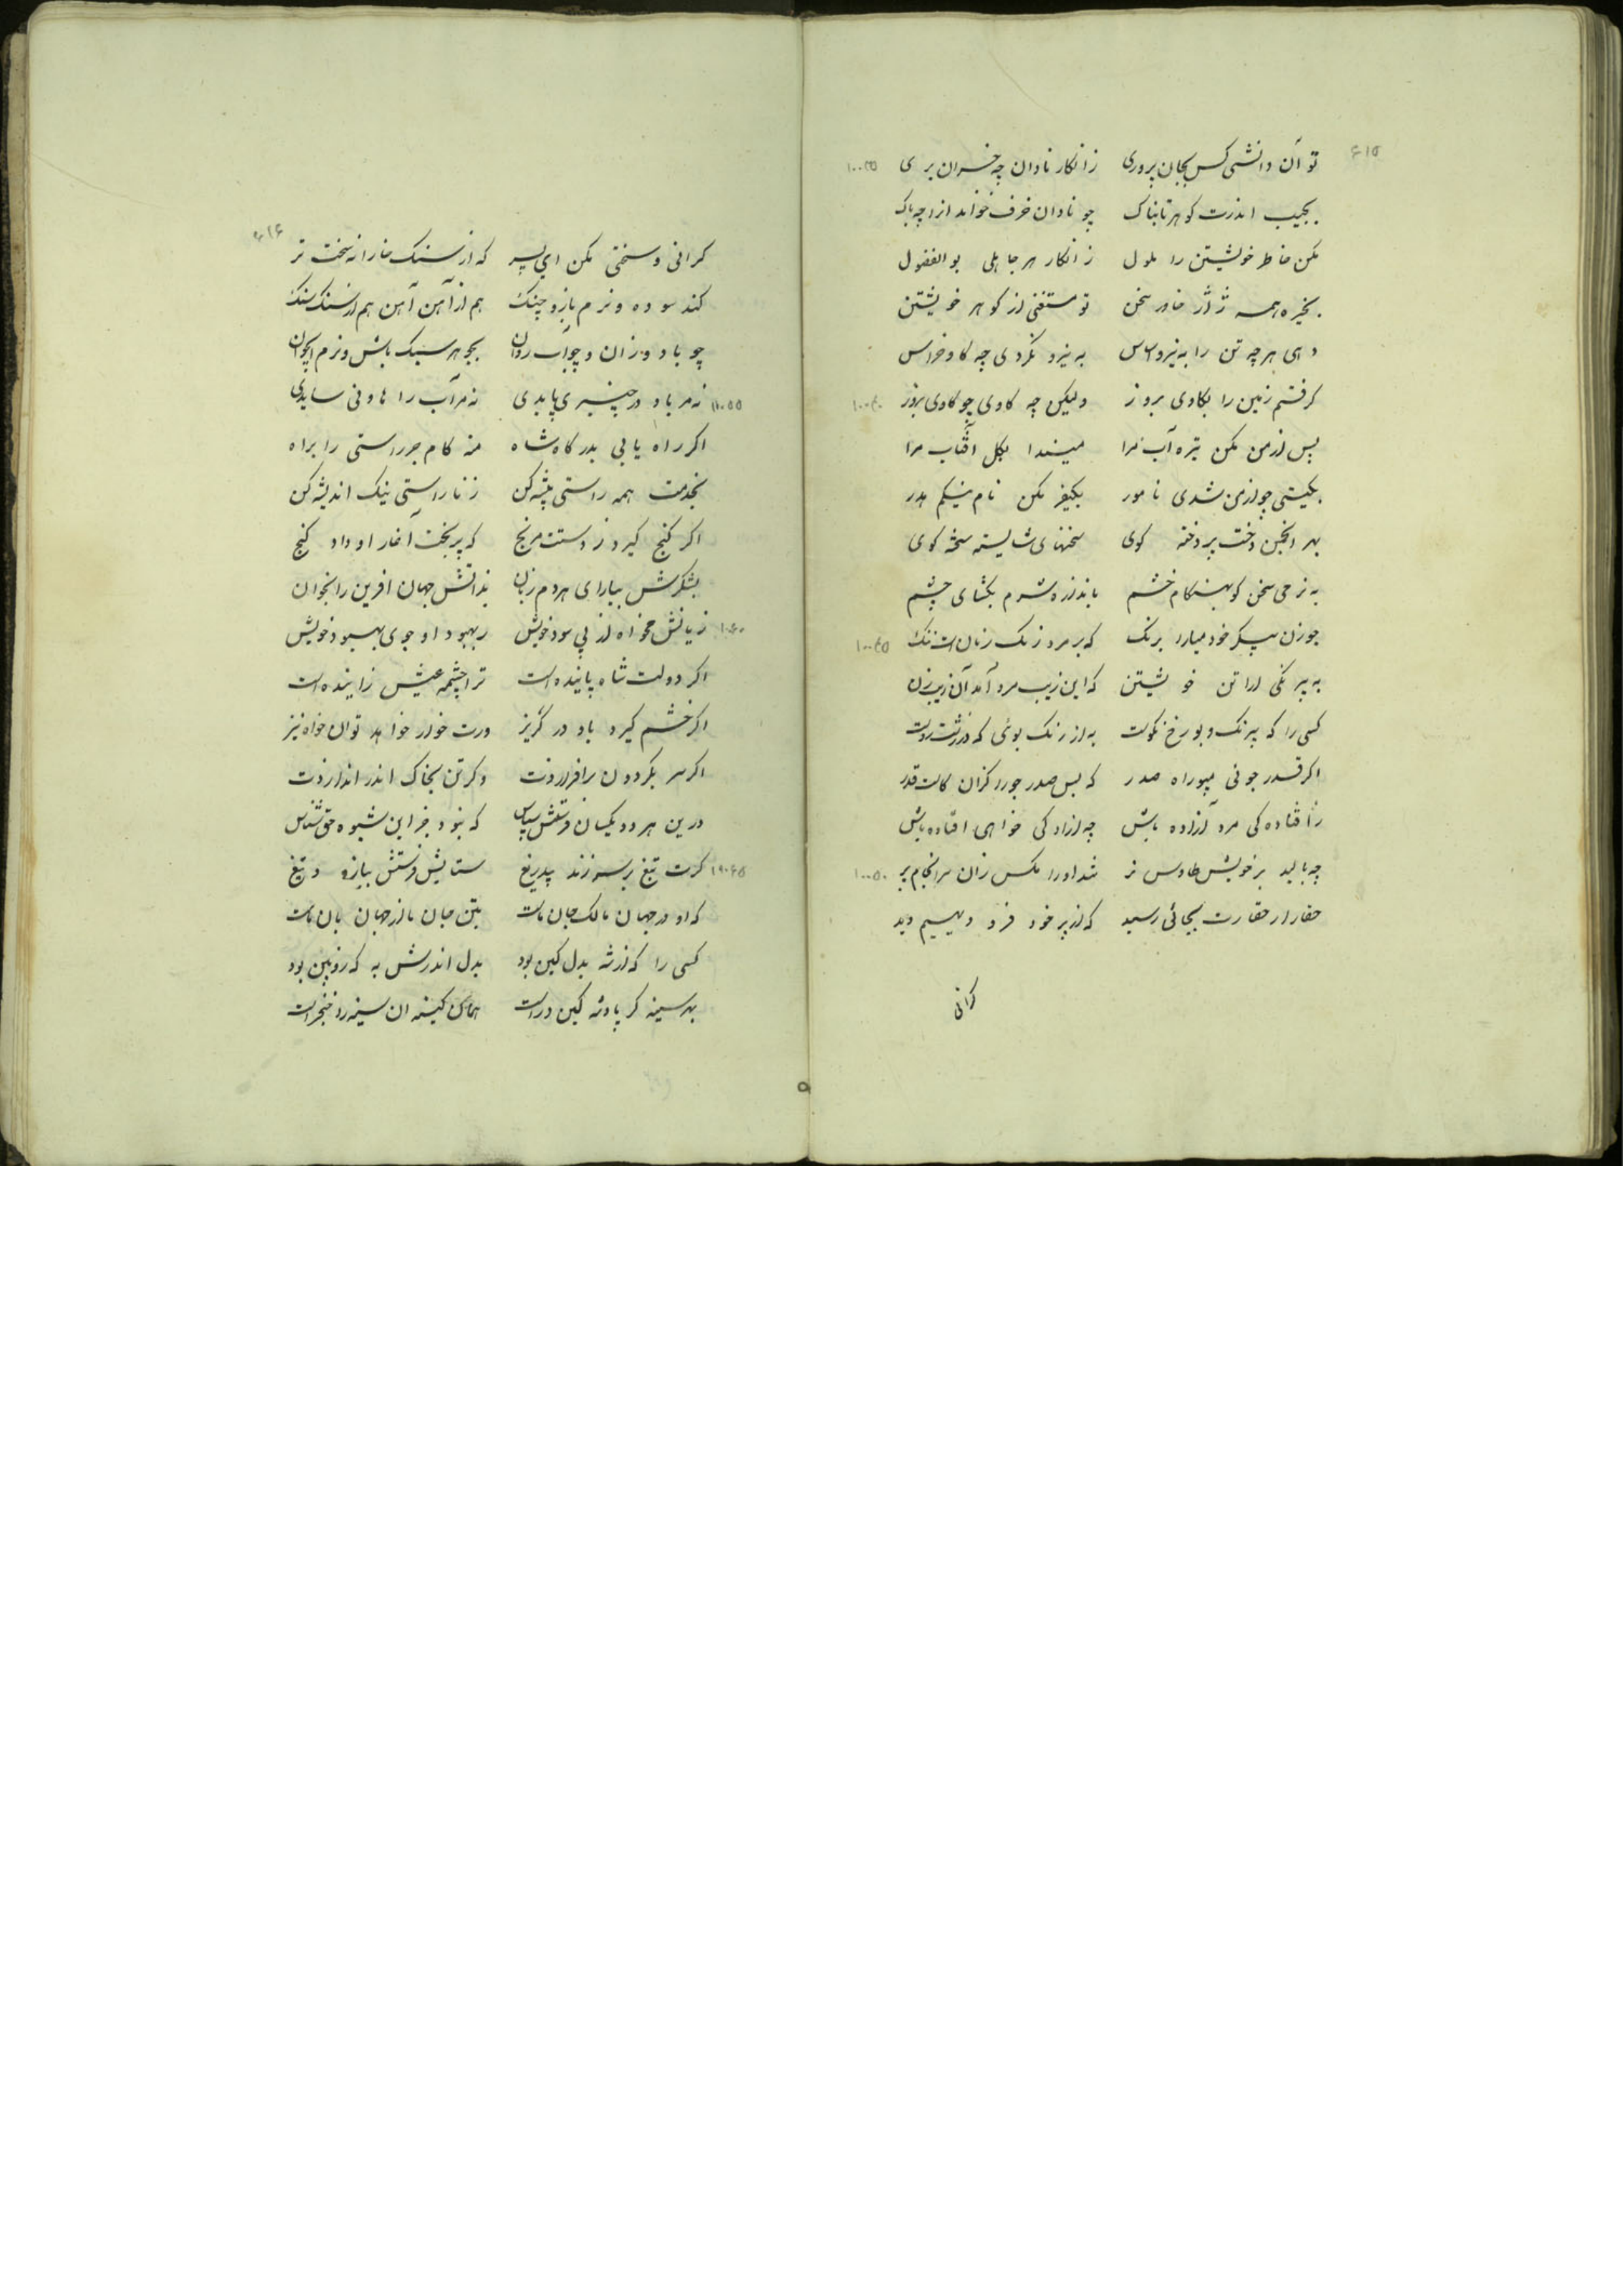 ۶۱۵
تو آن دانشی کس بجان پروری زانکار نادان چه خسران بری
بجیب اندرت کوهر تابناک چو نادان خزف خواند از او چه باک
مکن خاطر خویشتن را ملول زانکار هر جاهلی بوالفضول
بخیره همه ژاژ خاید سخن تو مستغنی از کوهر خویشتن
دهی هرچه تن را به نیرو به نیرو نکردی چه کاو خراس
کرفتم زمین را بکاوی بروز ولیکن چه کاوی چو کاوی بزور
پس از من مکن تیره آب مرا میندا بکل آفتاب مرا
بکیتی چو از من شدی نامور بکیفر مکن نام نیکم هدر
بهر انجمن پردخته کوی سخنهای شایسته سخته کوی
به نرمی سخن کو بهنکام خشم باندازه شرم بکشای چشم
چو زن پیکر خود میارا برنک که بر مرد رنک زنان است ننک
به بیرنکی آرا تن خویشتن که این زیب مرد آمد آن زیب زن
کسی را که بیرنک و بو رخ نکوست به از رنک بوئی که در زشت روست
اکر قدر جوئی مپو راه صدر که بس صدر جور از کران کاست قدر
زافتاده کی مرد آزاده باش چه آزادکی خواهی افتاده باش
چه بالید بر خویش طاوس نر شد او را مکس ران سرانجام پر
حقار از حقارت بجائی رسید که از پر خود فرد دیهیم دید
کرانی
۶۱۶
کرانی و سختی مکن ای پسر که از سنک خارا نه سخت تر
کند سوده و نرم بازو و چنک هم از آهن آهن هم از سنک سنک
چو باد وزان و چو آب روان بجوهر سبک باش و نرم ایجوان
نه مر باد در چنبری پایدی نه مر آب را هاونی سایدی
اکر راه یابی بدرکاه شاه منه کام جز راستی را براه
بخدمت همه راستی پیشه کن زناراستی نیک اندیشه کن
اکر کنج کیرد ز دستت مرنج که بر بخت آغاز او داد کنج
بشکرش بیارای هردم زبان بدانش جهان آفرین را بخوان
زیانش مخواه از پی سود خویش زبهبود او جوی بهبود خویش
اکر دولت شاه پاینده است ترا چشمه عیش زاینده است
اکر خشم کیرد باو در کریز ورت خوار خواهد توان خواه نیز
اکر سر بکردون برافرازدت وکر تن بخاک اندر اندازدت
درین هر دو یکسان فرستش سپاس که نبود جز این شیوه حق شناس
کرت تیغ بر سر زند بیدریغ ستایش فرستش ببازو و تیغ
که او در جهان مالک جان ماست بتن جان ما از جهان بان ماست
کسی را که از شه بدل کین بود بدل اندرش به که زوبین بود
بهر سینه کز پادشه کین دراست همان کینه آن سینه را خنجر است